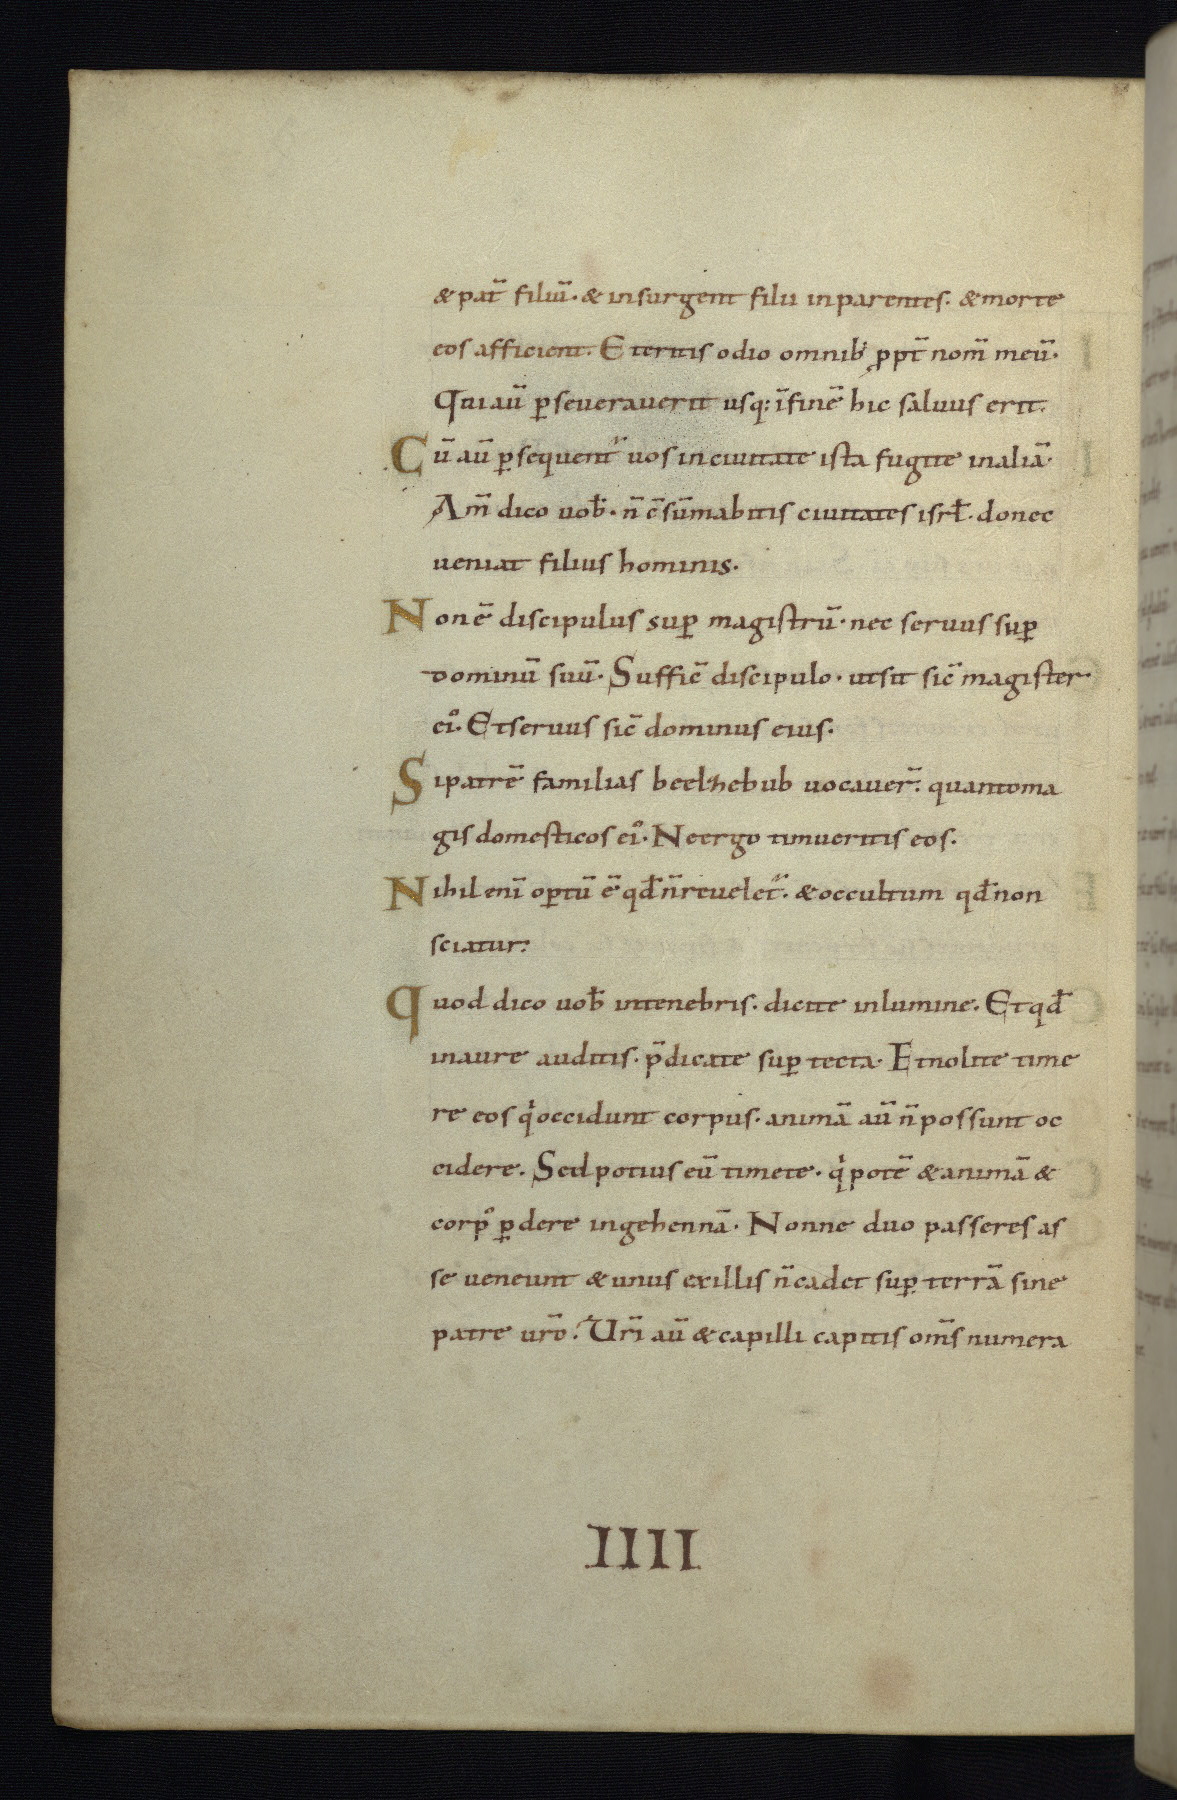 & pat̄ filiū· & insurgent filii inparentes· & morte
eos afficient· Eteritis odio omnib; ꝓpt̄ nom̄ meū·
Qui aū ꝑseuerauerit usq; īfinē hic saluus erit·
Cū aū ꝑsequent᷑ uos inciuitate ista fugite inaliā·
Am̄ dico uob̄· n̄ c̄sūmabitis ciuitates isrł· donec
ueniat filius hominis·
Non ē discipulus suꝑ magistrū· nec seruus suꝑ
dominū suū· Sufficē discipulo· utsit sic̄ magister
ei᷒· Etseruus sic̄ dominus eius·
Sipatrē familias beelzebub uocauer̄· quantoma
gis domesticos ei᷒· Neergo timueritis eos·
Nihil enī oꝑtū ē qd̄ n̄reuelet᷑· & occultum qd̄ non
sciatur·
Quod dico uob̄ intenebris· dicite inlumine· Etqd̄
inaure auditis· p̄dicate suꝑ tecta· Etnolite time
re eos qͥ occidunt corpus· animā aū n̄possunt oc
cidere· Sed potius eū timete· qͥ potē & animā &
corp᷒ ꝑdere ingehennā· Nonne duo passeres as
se ueneunt & unus exillis n̄cadet suꝑ terrā sine
patre ur̄o· Ur̄i aū & capilli capitis om̄s numera
IIII